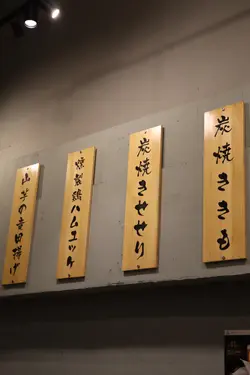 炭焼ききも
炭焼きせせり
燻製鶏ハムユッケ
山芋の竜田揚げ